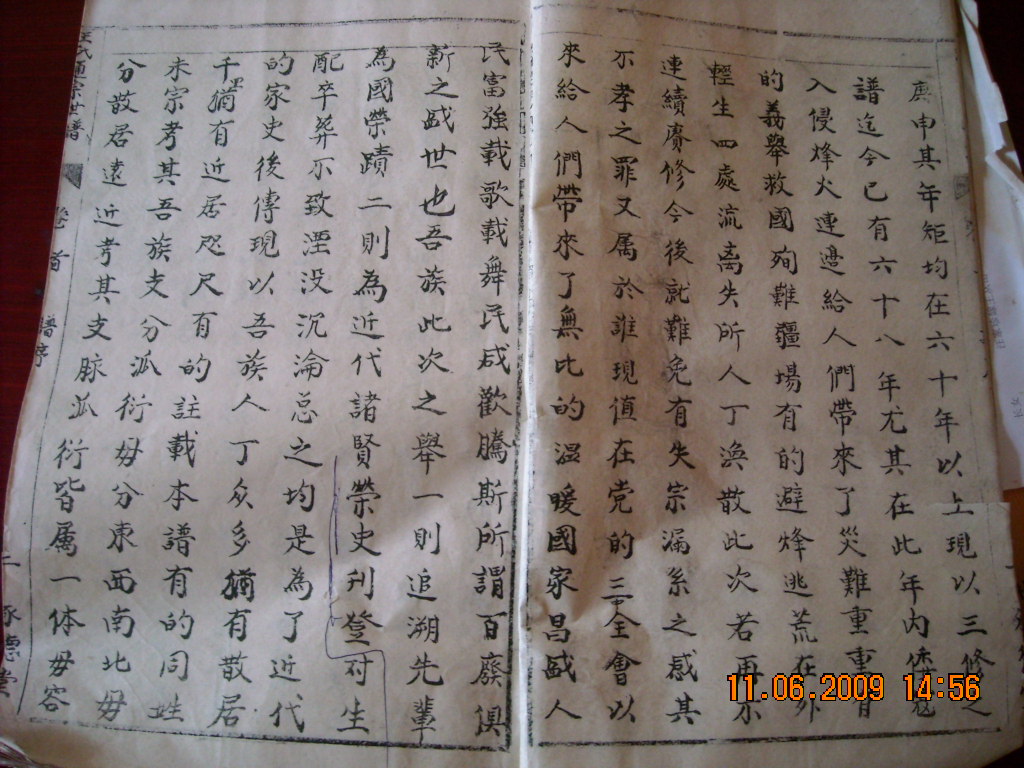 庚申其年矩均在六十年以上現以三修之
譜迄今已有六十八年尤其在此年内倭寇
入侵烽火連邊給人們帶來了災難重重有
的義舉救國殉難疆場有的避烽逃荒在外
輕生四處流离失所人丁渙散此次若再不
連續賡修今後就難免有失宗漏系之感其
不孝之罪又属於誰現值在党的三中全會以
來給人們帶來了無比的温暖國家昌盛人
民富強載歌載舞民咸歡騰斯所謂百廢俱
新之盛世也吾族此次之舉一則追溯先輩
為國榮蹟二則為近代諸賢榮史刊登对生
配卒葬不致湮没沉淪总之均是為了近代
的家史後傳現以吾族人丁众多猶有散居
千里猶有近居咫尺有的註載本譜有的同姓
未宗考其吾族支分派衍毋分東西南北毋
分散居遠近考其支脉派衍皆属一体毋容
氏通宗世譜 卷首 譜序 二 承德堂
11.06.2009 14:56